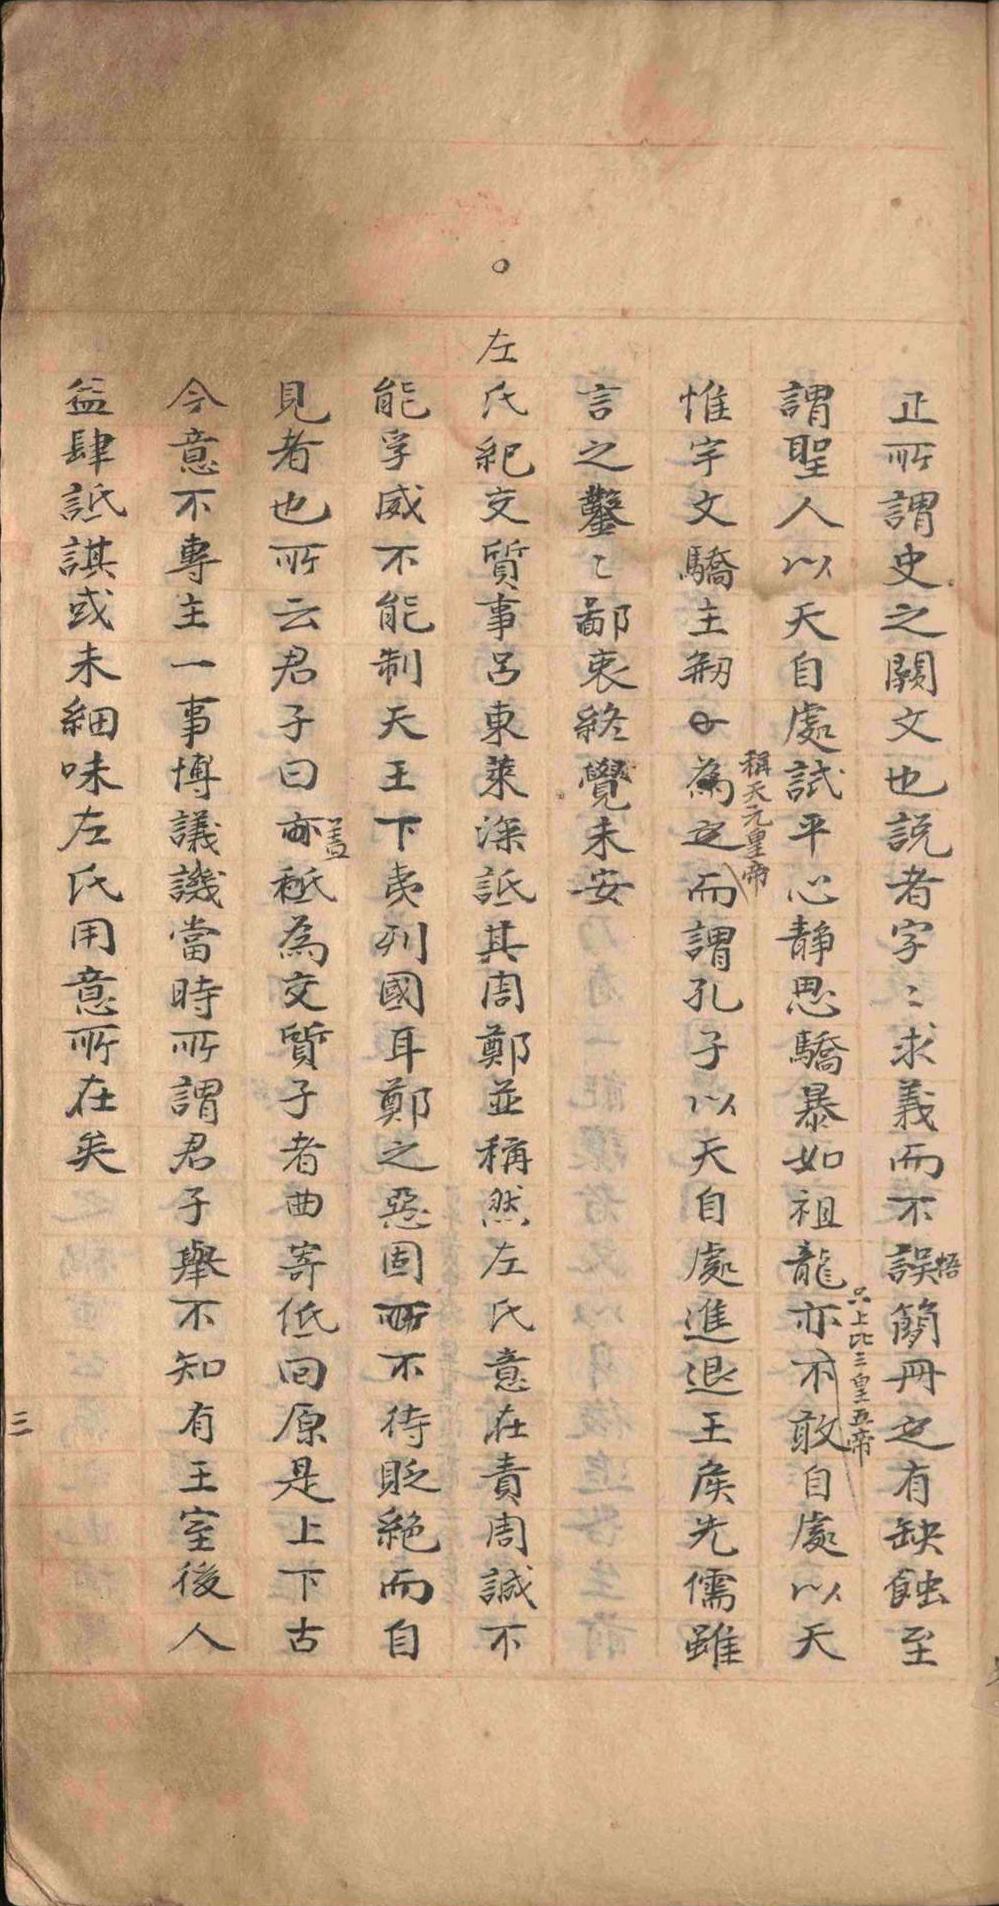 正所謂史之闕文也説者字〻求義而不誤簡冊之有缺蝕至
悟
謂聖人以天自處試平心靜思驕暴如祖龍亦不敢自處以天
只上比三皇五帝
惟宇文驕主剏為之而謂孔子以天自處進退王侯先儒雖
稱天元皇帝
言之鑿〻鄙衷終覺未安
。
左氏紀交質事呂東萊深詆其周鄭並稱然左氏意在責周誠不
能孚威不能制天王下夷列國耳鄭之惡固不待貶絶而自
見者也所云君子曰亦秪為交質子者曲寄低回原是上下古
蓋
今意不專主一事博議譏當時所謂君子舉不知有王室後人
益肆詆諆或未細味左氏用意所在矣
三